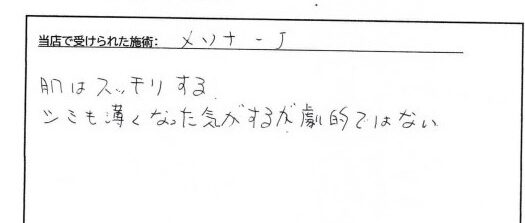 当店で受けられた施術: メソナーJ
肌はスッキリする
シミも薄くなった気がするが劇的ではない